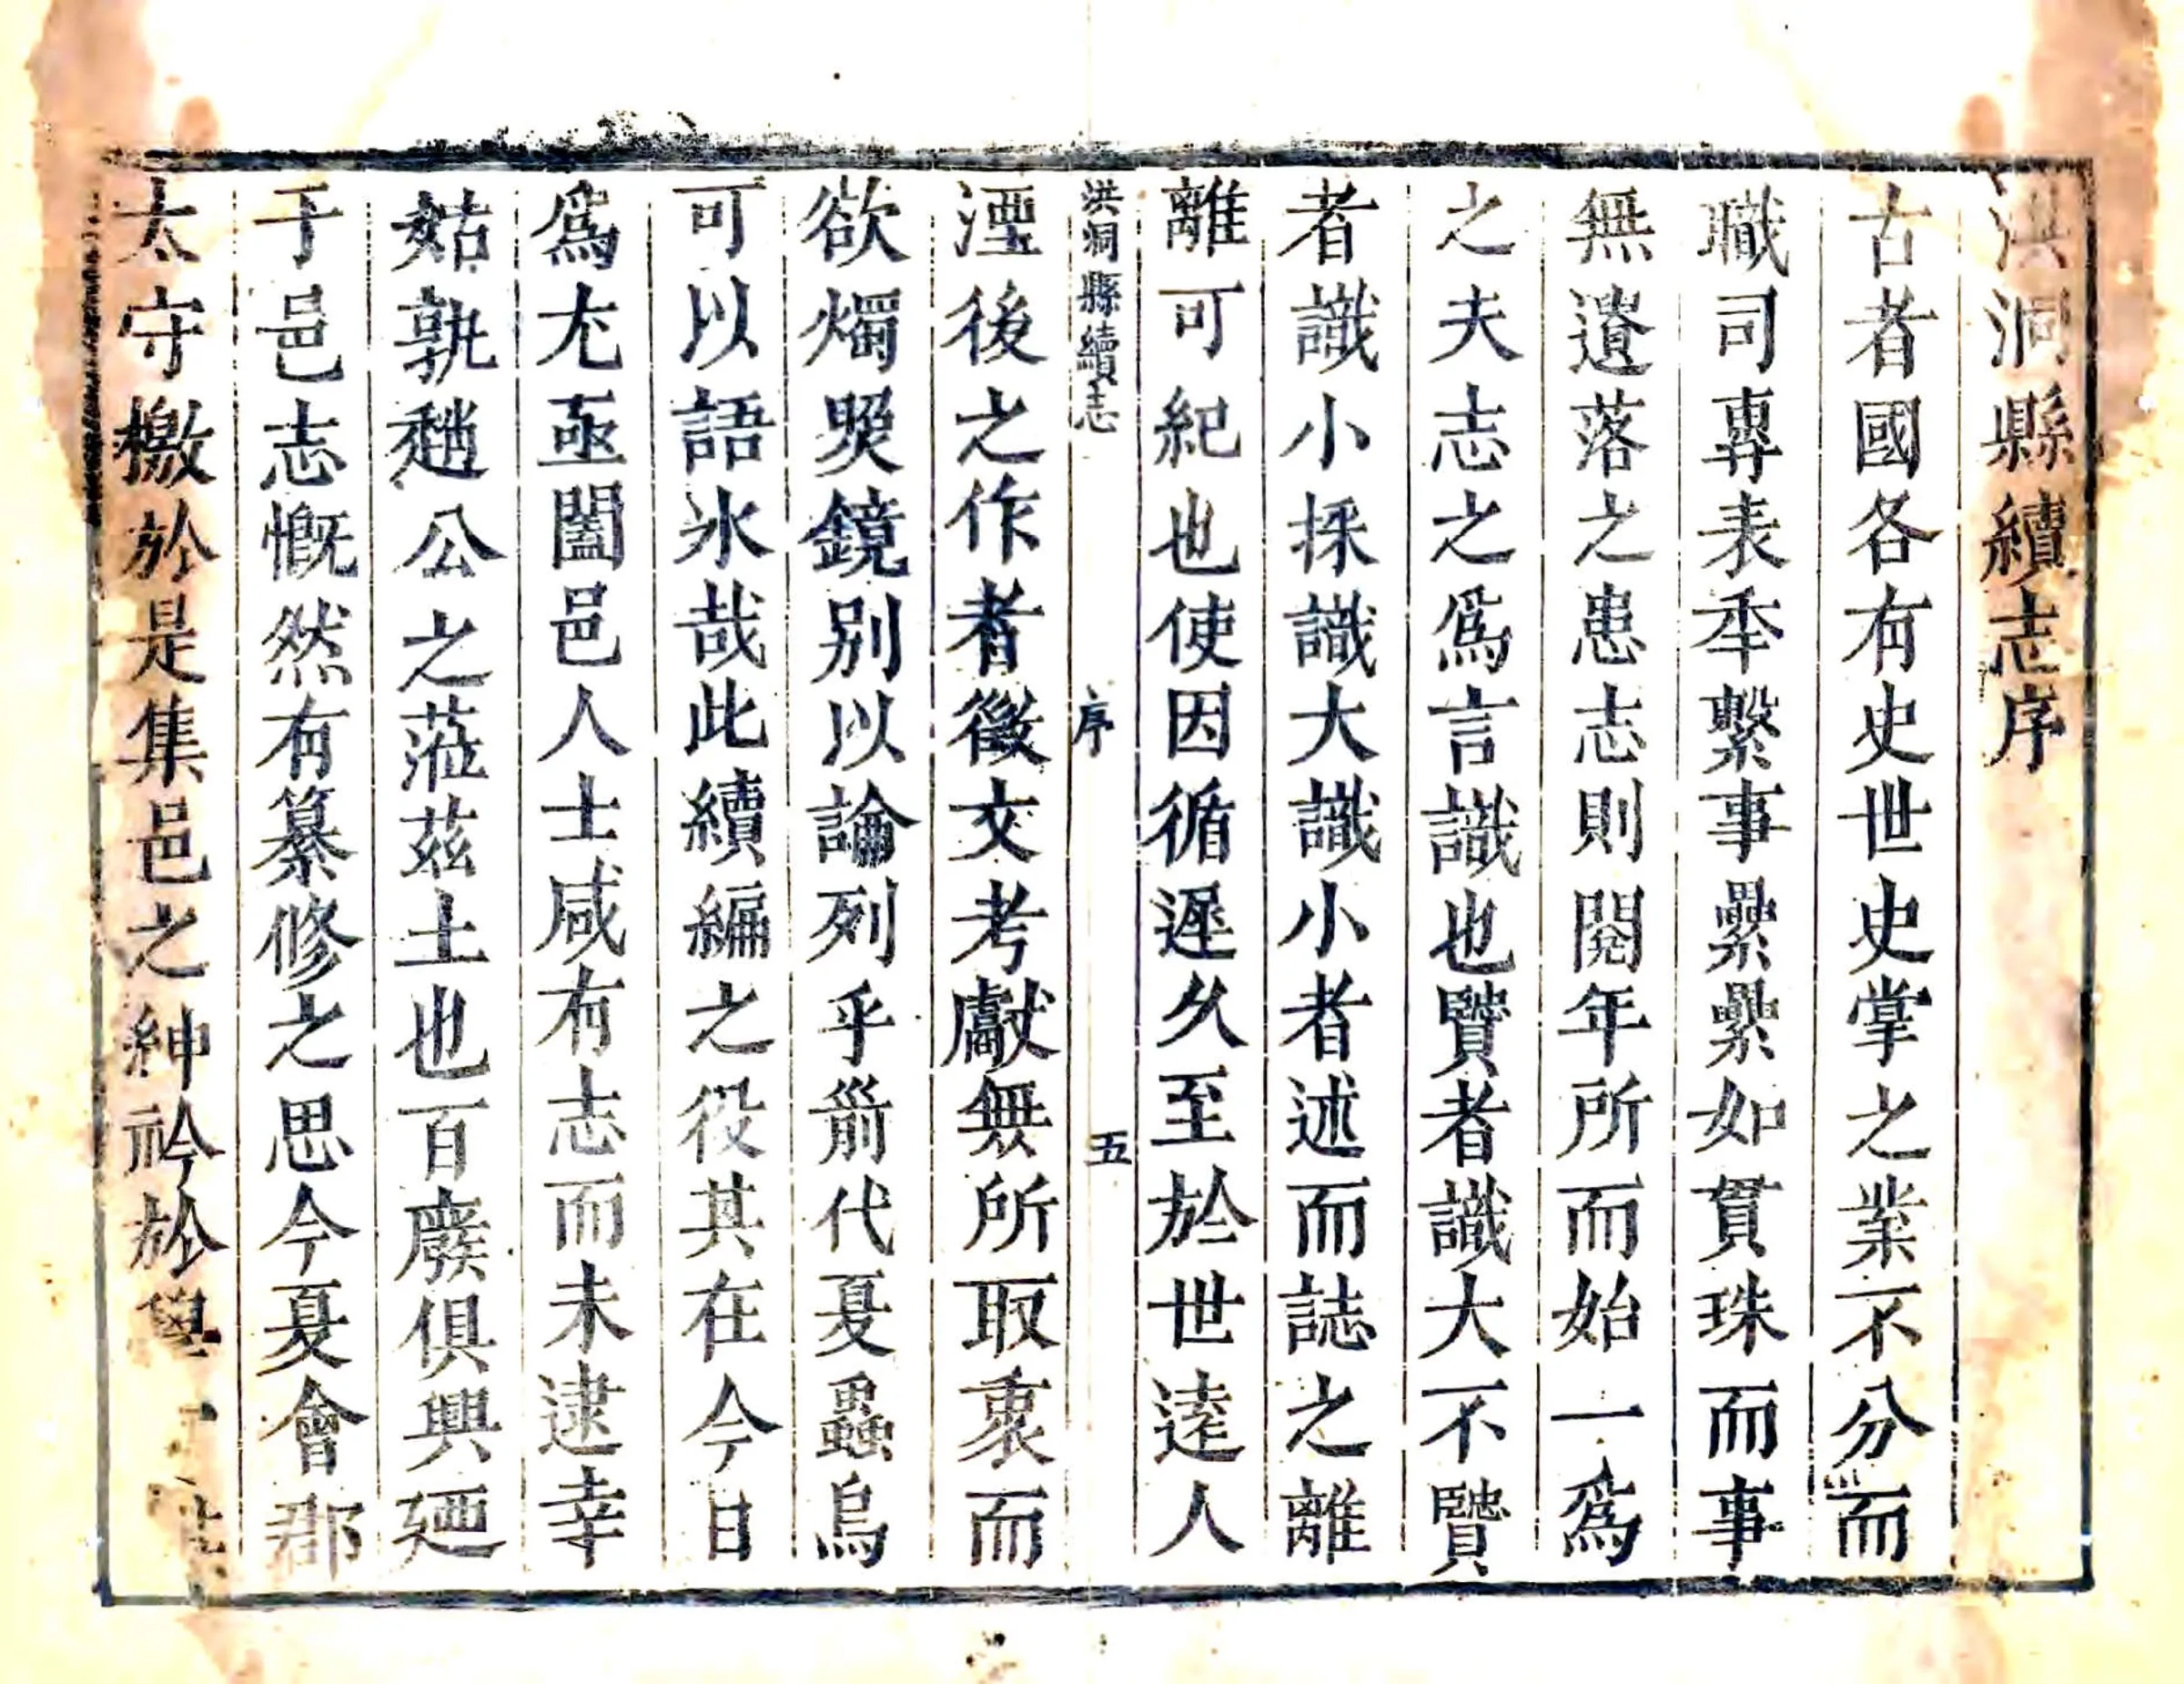 洪洞縣續志序
古者國各有史世史掌之業不分而
職司專表秊繫事纍纍如貫珠而事
無遺落之患志則閱年所而始一爲
之夫志之爲言識也賢者識大不賢
者識小採識大識小者述而誌之離
離可紀也使因循遲久至於世逺人
洪洞縣續志 序 五
湮後之作者徵文考獻無所取衷而
欲燭照鏡别以論列乎前代夏蟲烏
可以語氷哉此續編之役其在今日
爲尤亟闔邑人士咸有志而未逮幸
姑孰趙公之蒞茲土也百廢俱興廼
于邑志慨然有纂修之思今夏會郡
太守檄於是集邑之紳衿於學